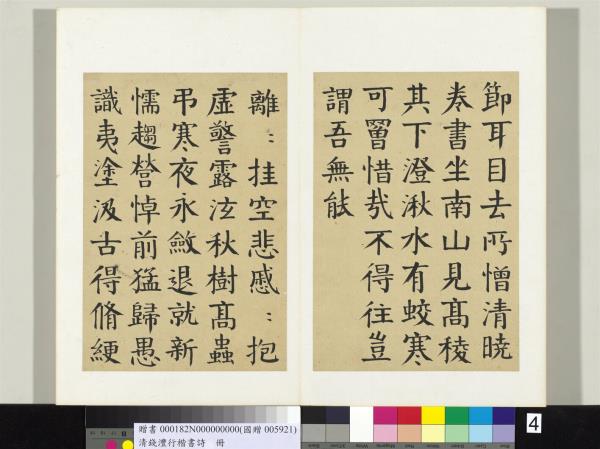 節耳目去所憎清曉
卷書坐南山見高稜
其下澄湫水有蛟寒
可罾惜哉不得往豈
謂吾無能
離〻挂空悲慼〻抱
虛警露泫秋樹高蟲
弔寒夜永斂退就新
懦趨營悼前猛歸愚
識夷塗汲古得脩綆
贈書 000182N000000000(國贈 005921)
清錢灃行楷書詩　冊
4